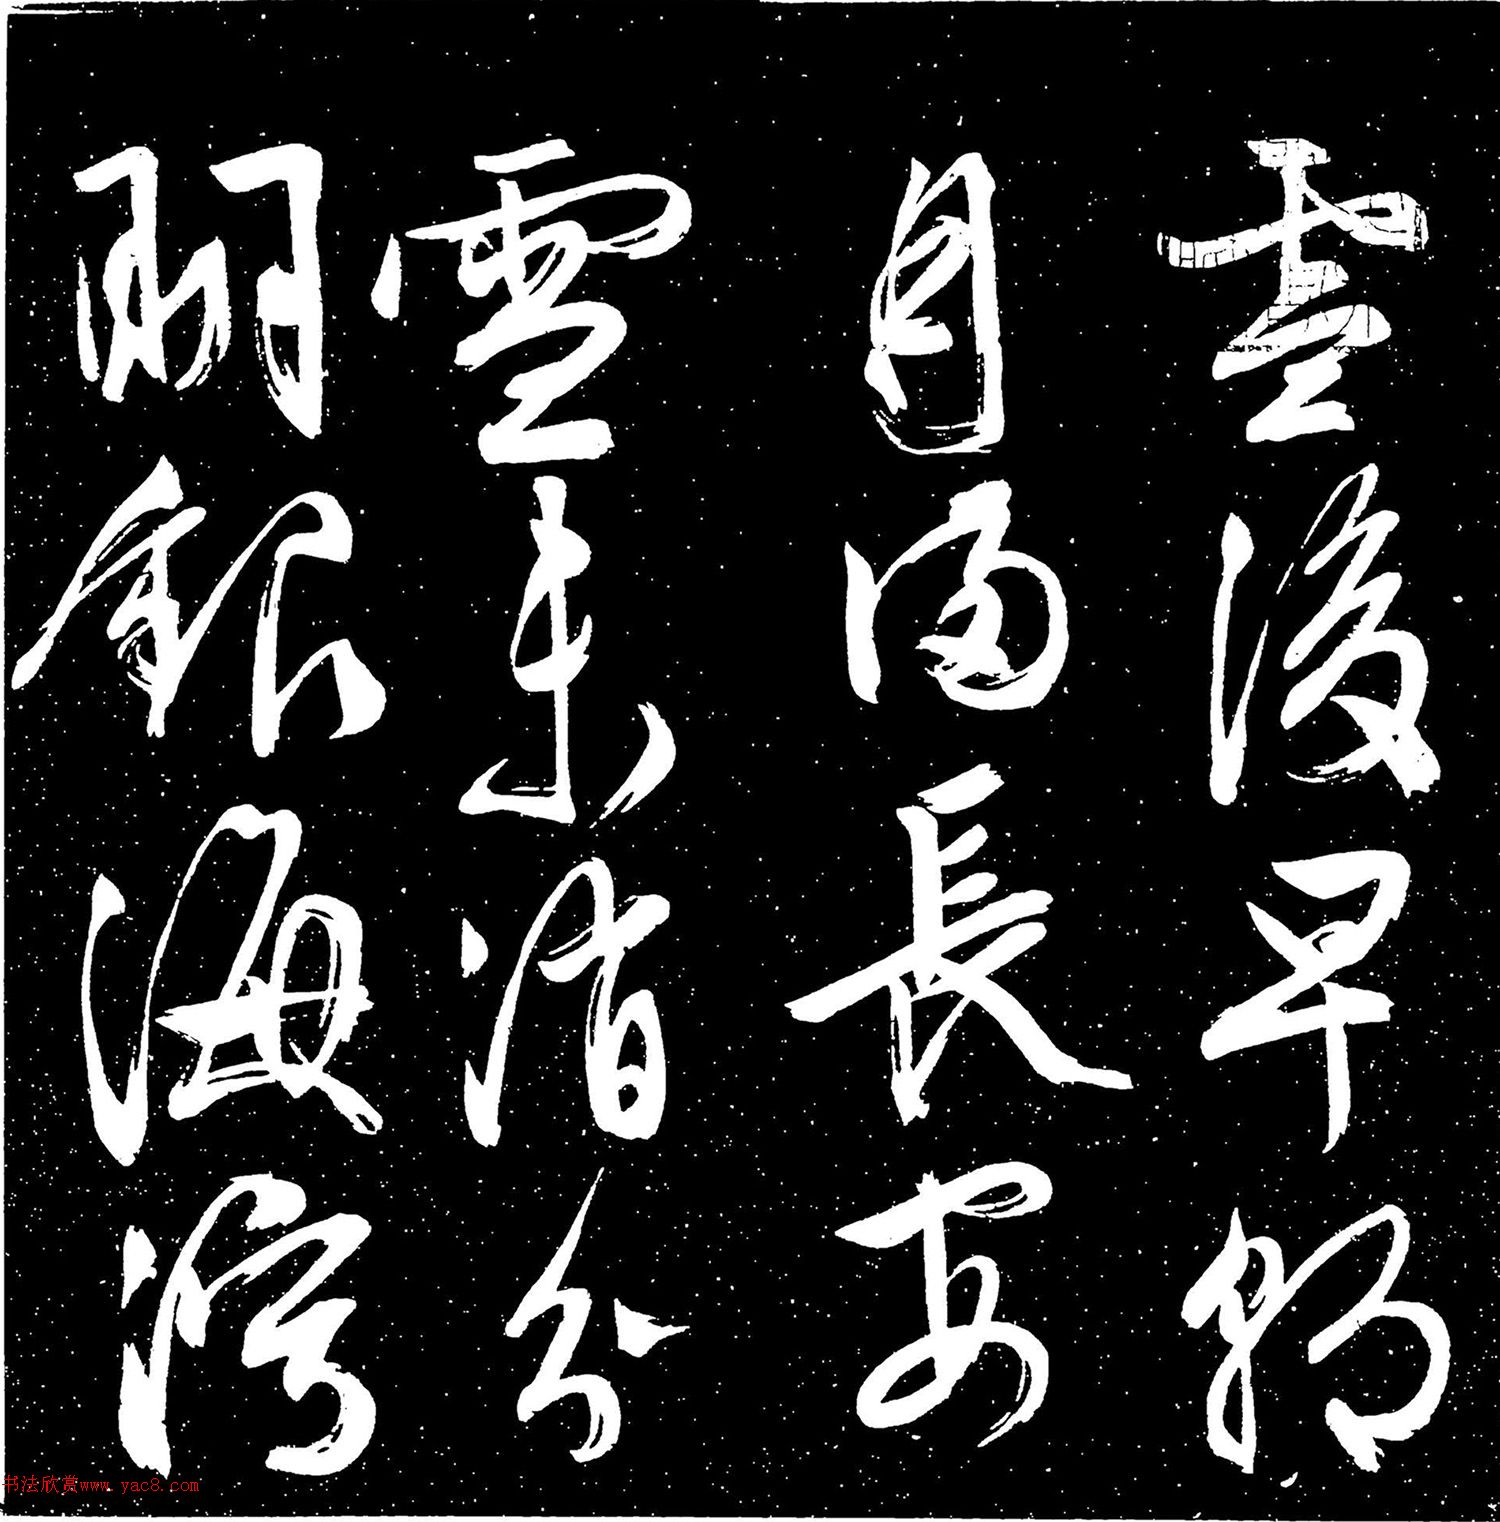 雪後早朝
月滿長安
雪未消分
明銀海
书法欣赏www.yac8.com